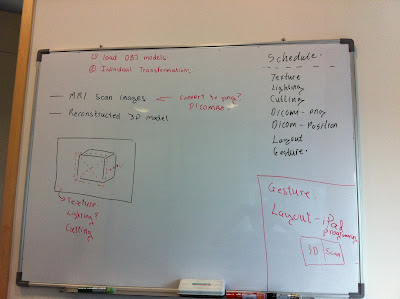 load OBJ models
② Individual Transformation,
— MRI Scan images ← Convert to png?
DICOM
— Reconstructed 3D model
Texture
Lighting?
Culling
Schedule.
Texture
Lighting
Culling
Dicom - png
Dicom - Position
Layout
Gesture.
Gesture.
Layout - iPad
programming
3D Scan